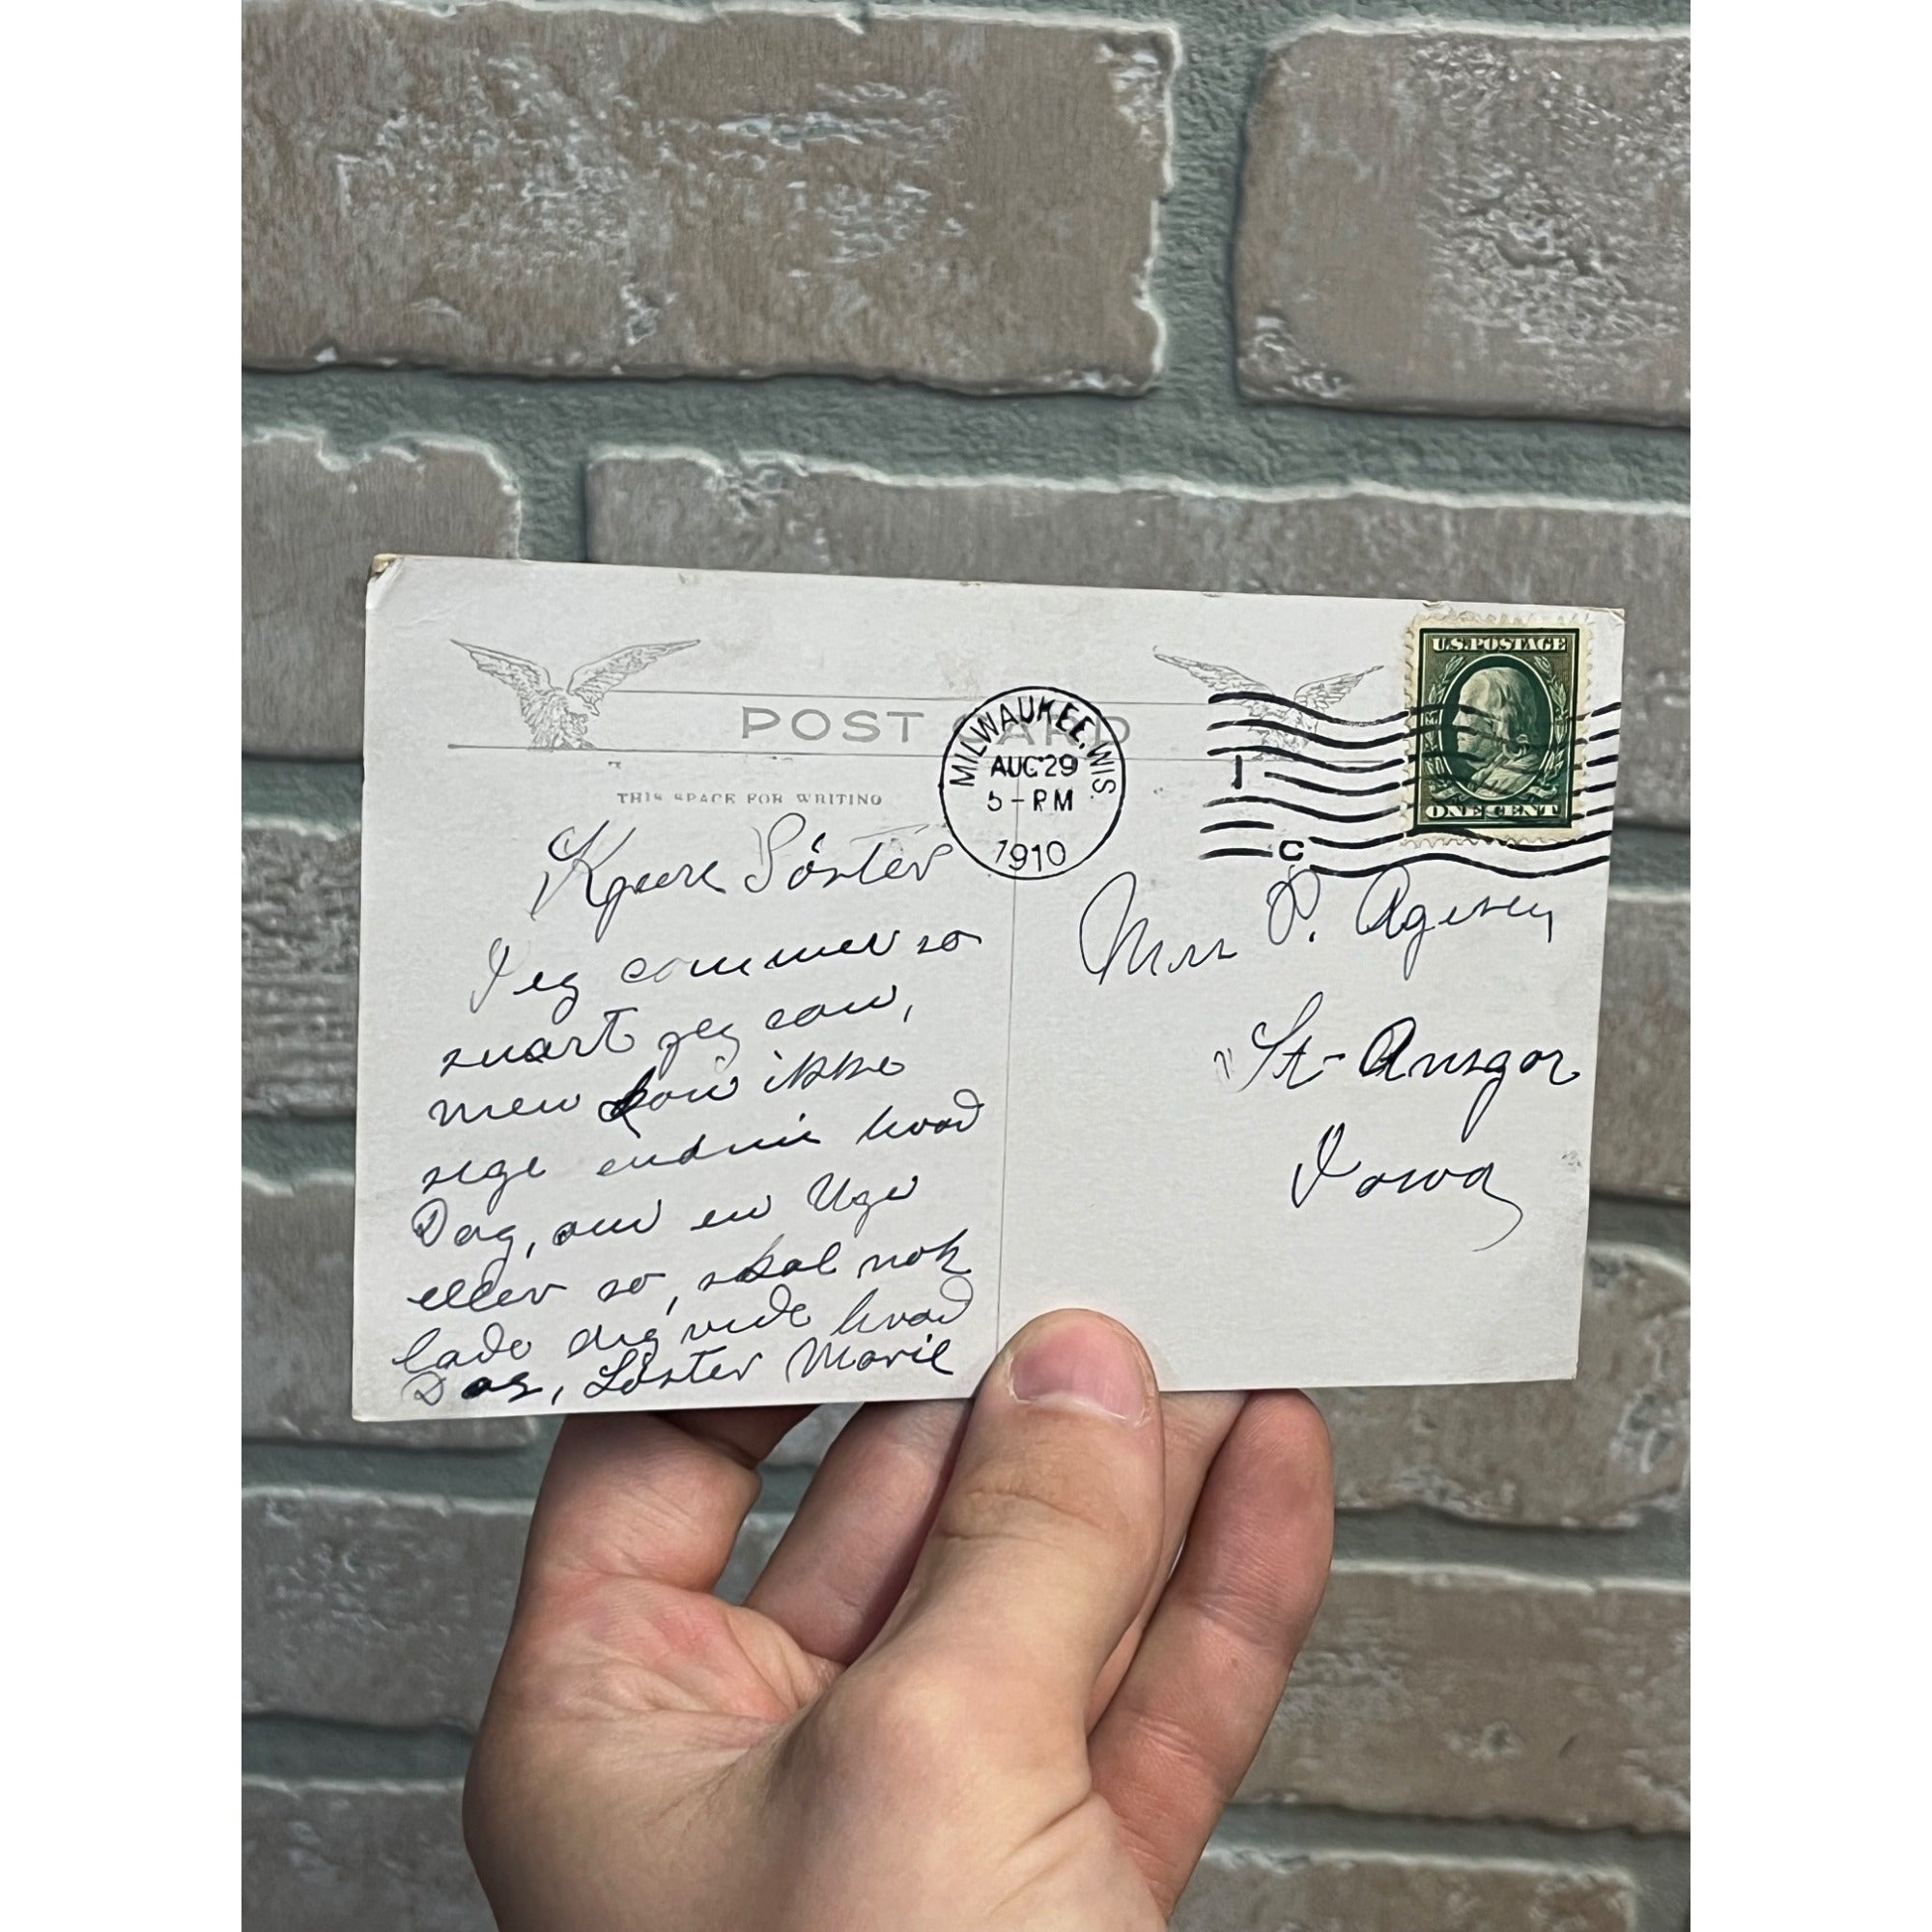 POST CARD
THIS SPACE FOR WRITING
MILWAUKEE, WIS.
AUG 29
5-PM
1910
1
C
U.S. POSTAGE
ONE CENT
Kjaere Söster
Jeg commer so
snart jeg can,
men kan ikke
sige endnu hvad
Dag, om en Uge
eller so, skal nok
lade dig vide hvad
Dag, Söster Marie
Mrs P.
St-Ansgar
Iowa